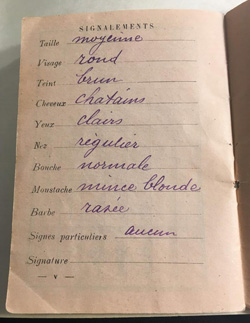 SIGNALEMENTS
Taille moyenne
Visage rond
Teint brun
Cheveux chatains
Yeux clairs
Nez régulier
Bouche normale
Moustache mince blonde
Barbe rasée
Signes particuliers aucun
Signature
— V —